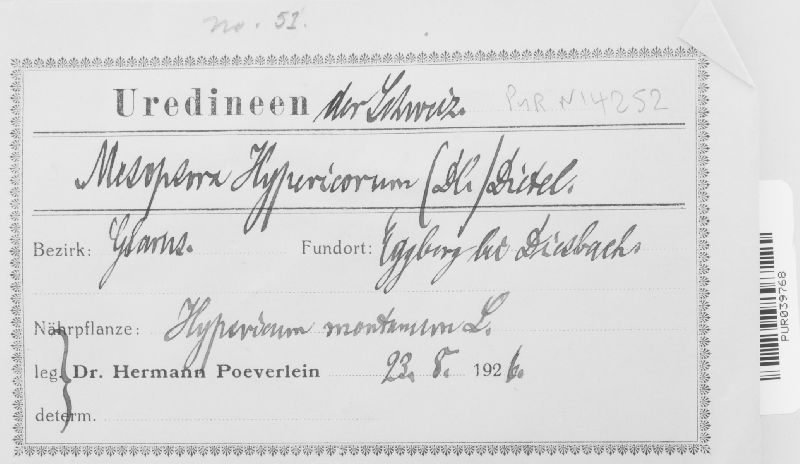 No. 51.
Uredineen der Schweiz.
PUR N14252
Mesopsora Hypericorum (Dl.) Dietel.
Bezirk: Glarus. Fundort: Eggberg bei Diesbach.
Nährpflanze: Hypericum montanum L.
leg. Dr. Hermann Poeverlein 23. 8. 1926.
determ.
PUR039768